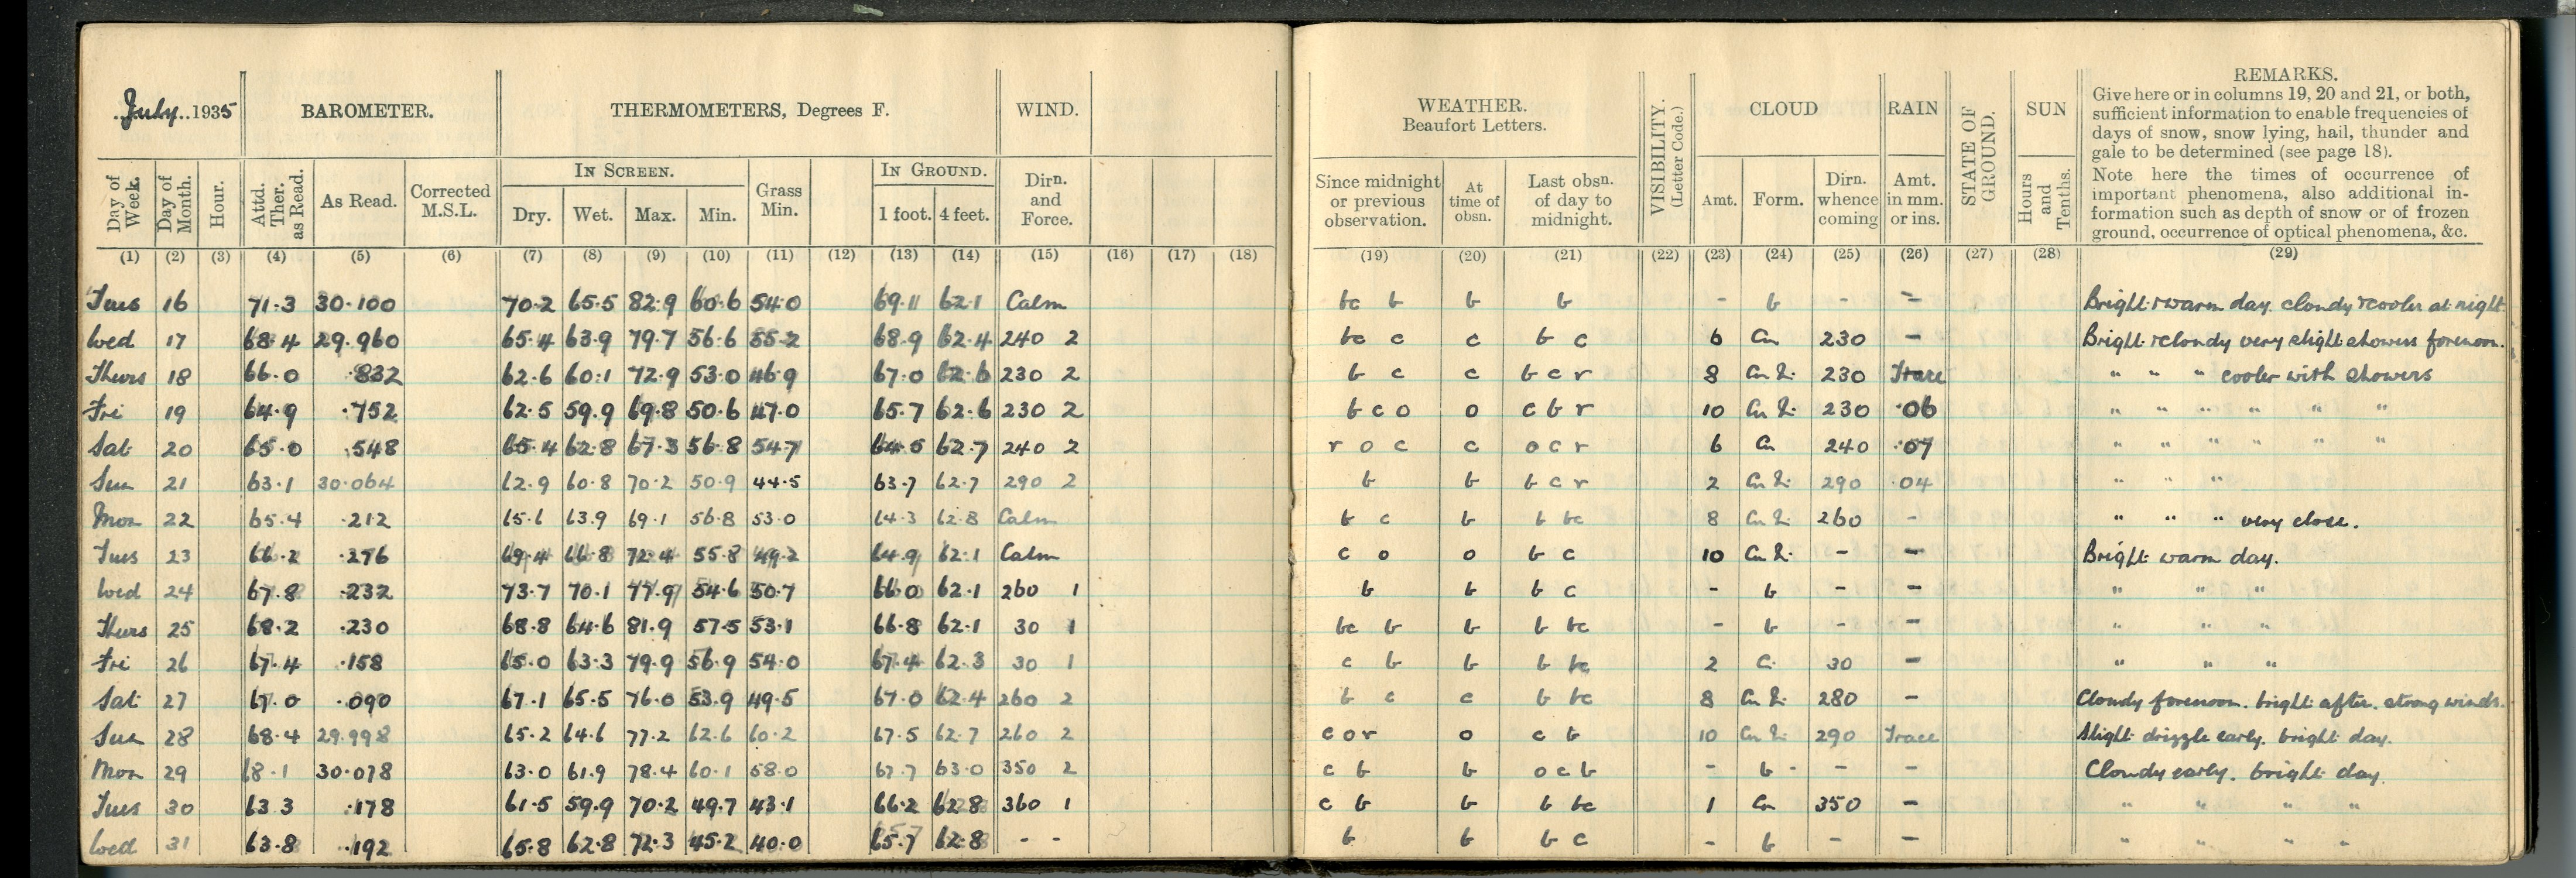 July 1935 BAROMETER. THERMOMETERS, Degrees F. WIND. WEATHER. Beaufort Letters. VISIBILITY. (Letter Code.) CLOUD RAIN STATE OF GROUND. SUN REMARKS.
Give here or in columns 19, 20 and 21, or both,
sufficient information to enable frequencies of
days of snow, snow lying, hail, thunder and
gale to be determined (see page 18).
Note here the times of occurrence of
important phenomena, also additional in-
formation such as depth of snow or of frozen
ground, occurrence of optical phenomena, &c.
IN SCREEN. IN GROUND.
Day of Week. Day of Month. Hour. Attd. Ther. as Read. As Read. Corrected M.S.L. Dry. Wet. Max. Min. Grass Min. 1 foot. 4 feet. Dirn. and Force. Since midnight or previous observation. At time of obsn. Last obsn. of day to midnight. Amt. Form. Dirn. whence coming Amt. in mm. or ins. Hours and Tenths.
(1) (2) (3) (4) (5) (6) (7) (8) (9) (10) (11) (12) (13) (14) (15) (16) (17) (18) (19) (20) (21) (22) (23) (24) (25) (26) (27) (28) (29)
Tues 16 71.3 30.100 70.2 65.5 82.9 60.6 54.0 69.11 62.1 Calm bc b b b - b - - Bright & warm day. cloudy & cooler at night.
Wed 17 68.4 29.960 65.4 63.9 79.7 56.6 55.2 68.9 62.4 240 2 bc c c b c 6 Cu 230 - Bright & cloudy very slight showers forenoon.
Thurs 18 66.0 .832 62.6 60.1 72.9 53.0 46.9 67.0 62.6 230 2 b c c b c r 8 230 Trace " " " cooler with showers
Fri 19 64.9 .752 62.5 59.9 69.8 50.6 47.0 65.7 62.6 230 2 b c o o c b r 10 230 .06 " " " " " "
Sat 20 65.0 .548 65.4 62.8 67.3 56.8 54.7 64.5 62.7 240 2 r o c c o c r 6 Cu 240 .07 " " " " " "
Sun 21 63.1 30.064 62.9 60.8 70.2 50.9 44.5 63.7 62.7 290 2 b b b c r 2 290 .04 " " "
Mon 22 65.4 .212 65.6 63.9 69.1 56.8 53.0 64.3 62.8 Calm b c b b bc 8 260 - " " " very close.
Tues 23 66.2 .276 69.4 66.8 72.4 55.8 49.2 64.9 62.1 Calm c o o b c 10 - - Bright warm day.
Wed 24 67.8 .232 73.7 70.1 77.9 54.6 50.7 66.0 62.1 260 1 b b b c - b - - " " "
Thurs 25 68.2 .230 68.8 64.6 81.9 57.5 53.1 66.8 62.1 30 1 bc b b b bc - b - - " " "
Fri 26 67.4 .158 65.0 63.3 79.9 56.9 54.0 67.4 62.3 30 1 c b b b bc 2 30 - " " "
Sat 27 67.0 .090 67.1 65.5 76.0 53.9 49.5 67.0 62.4 260 2 b c c b bc 8 280 - Cloudy forenoon. bright after. strong winds.
Sun 28 68.4 29.998 65.2 64.6 77.2 62.6 60.2 67.5 62.7 260 2 c o r o c b 10 290 Trace Slight drizzle early. bright day.
Mon 29 68.1 30.078 63.0 61.9 78.4 60.1 58.0 67.7 63.0 350 2 c b b o c b - b - - - Cloudy early. bright day.
Tues 30 63.3 .178 61.5 59.9 70.2 49.7 43.1 66.2 62.8 360 1 c b b b bc 1 Cu 350 - " " " "
Wed 31 63.8 .192 65.8 62.8 72.3 45.2 40.0 65.7 62.8 - - b b b c - b - - " " " "